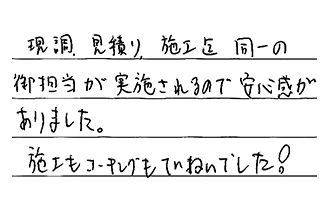 現調、見積り、施工迄 同一の
御担当が実施されるので安心感が
ありました。
施工もコーチングもていねいでした!